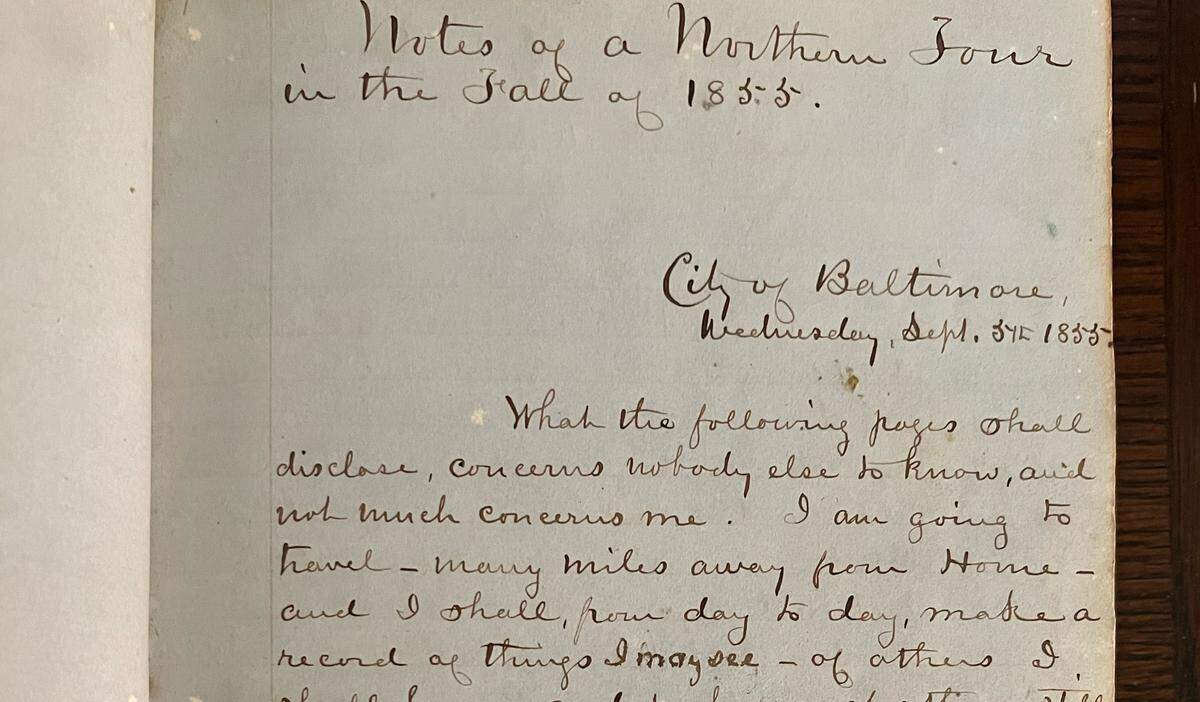 Notes of a Northern Tour
in the Fall of 1855.
City of Baltimore,
Wednesday, Sept. 5th 1855.
What the following pages shall
disclose, concerns nobody else to know, and
not much concerns me. I am going to
travel – many miles away from Home –
and I shall, from day to day, make a
record of things I may see – of others I